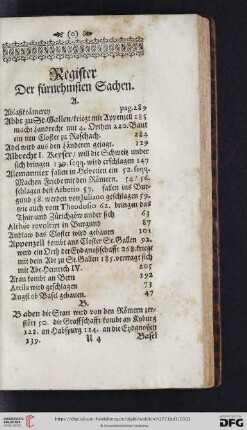 (o)
Register
Der fürnehmsten Sachen.
A.
Ablaßkrämerey pag. 289
Abbt zu St. Gallen / kriegt mit Appenzell 185
macht Landrecht mit 4. Orthen 220. Baut
ein neu Closter zu Roschach. 284
Adel wird aus den Länderen gejagt. 129
Albrecht I. Keyser / will die Schweitz under
sich bringen 130. seqq. wird erschlagen 147
Alemannier fallen in Helvetien ein 52. seqq.
Machen Friede mit den Römern. 54. 56.
schlagen den Aethetio 57. fallen ins Bur-
gund 58. werden von Juliano geschlagen 59.
wie auch vom Theodosio 62. bringen das
Thur- und Zürichgöw under sich 63
Altheæ revoltirt in Burgund 87
Andlau das Closter wird gebauen 101
Appenzell kombt ans Closter St. Gallen 92.
wird ein Orth der Eydgnoßschafft 268. kriegt
mit dem Abt zu St. Gallen 185. vertragt sich
mit Abt Heinrich IV. 205
Arau kombt an Bern 192
Attila wird geschlagen 73
Augst ob Basel gebauen. 47
B.
Baden die Statt wird von den Römern zer-
stört 50. die Graffschafft kombt an Kyburg
122. an Habspurg 124. an die Eydgnossen
139. R 4 Basel